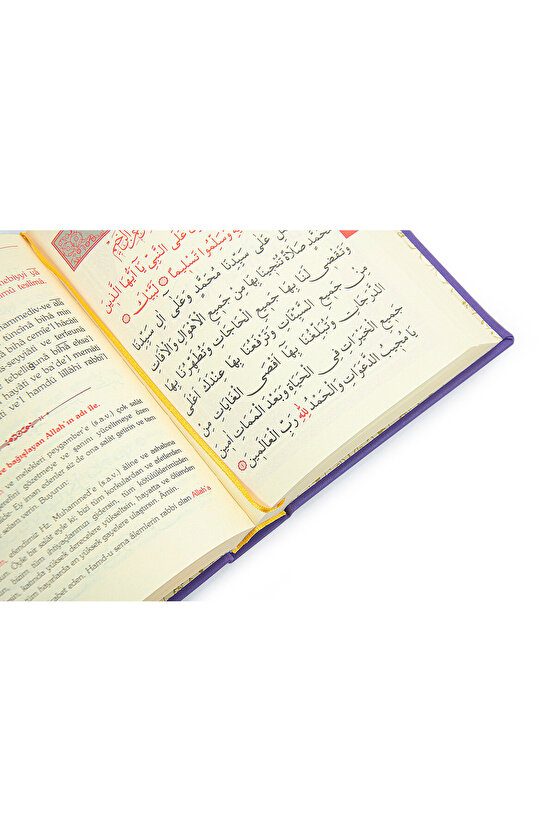 ٱلرَّحْمٰنِ الرَّحِيمِ
عَلَى النَّبِيِّ يَا أَيُّهَا الَّذِينَ
وَسَلِّمُوا تَسْلِيمًا لَبَّيْكَ
عَلَى سَيِّدِنَا مُحَمَّدٍ وَعَلَى آلِ سَيِّدِنَا
مُحَمَّدٍ صَلَاةً تُنْجِينَا بِهَا مِنْ جَمِيعِ الْأَهْوَالِ وَالْآفَاتِ
وَتَقْضِي لَنَا بِهَا جَمِيعَ الْحَاجَاتِ وَتُطَهِّرُنَا بِهَا
مِنْ جَمِيعِ السَّيِّئَاتِ وَتَرْفَعُنَا بِهَا عِنْدَكَ أَعْلَى
الدَّرَجَاتِ وَتُبَلِّغُنَا بِهَا أَقْصَى الْغَايَاتِ مِنْ
جَمِيعِ الْخَيْرَاتِ فِي الْحَيَاةِ وَبَعْدَ الْمَمَاتِ آمِينَ
يَا مُجِيبَ الدَّعَوَاتِ وَالْحَمْدُ لِلّٰهِ رَبِّ الْعَالَمِينَ
nebiyyi
teslîmâ.
hammediv-ve alâ
tüncînâ bihâ min
bihâ cemîe'l-hâcâti
s-seyyiâti ve terfeunâ
tebelliğunâ bihâ eksa'l
hayâti ve ba'de'l-memâti
ve'l hamdü lillâhi rabbi'l
ve bağışlayan Allah'ın adı ile.
ve melekleri peygamber'e (s.a.v.) çok salât
şerefini gözetmeye ve şanını yüceltmeye özen
Ey iman edenler siz de ona salât getirin ve tam
Buyurun:
efendimiz Hz. Muhammed'e (s.a.v.) âline ve ashabına
Öyle bir salât eyle ki, bizi tüm korkulardan ve afetlerden
bizim tüm ihtiyaçlarımızı gidersin, tüm kötülüklerimizden
katında yüksek derecelere yükseltsin, hayatta ve ölümden
tüm hayırlarda en yüksek gayelere ulaştırsın. Âmin.
kabul eden. Hamd-u sena âlemlerin rabbi olan Allah'a